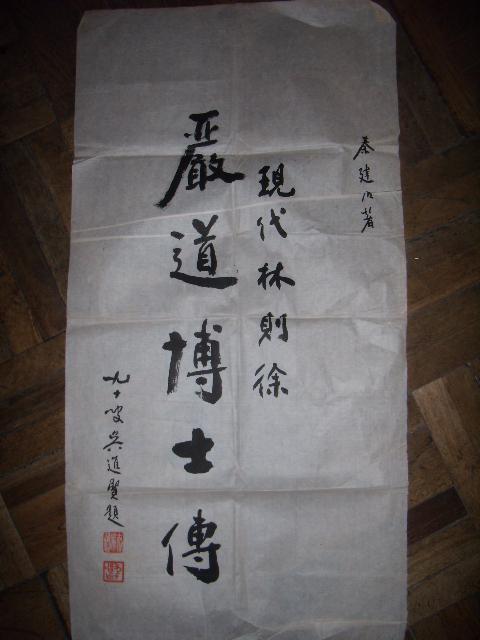 秦建著
現代林則徐
嚴道博士傳
九十叟吳進賢題